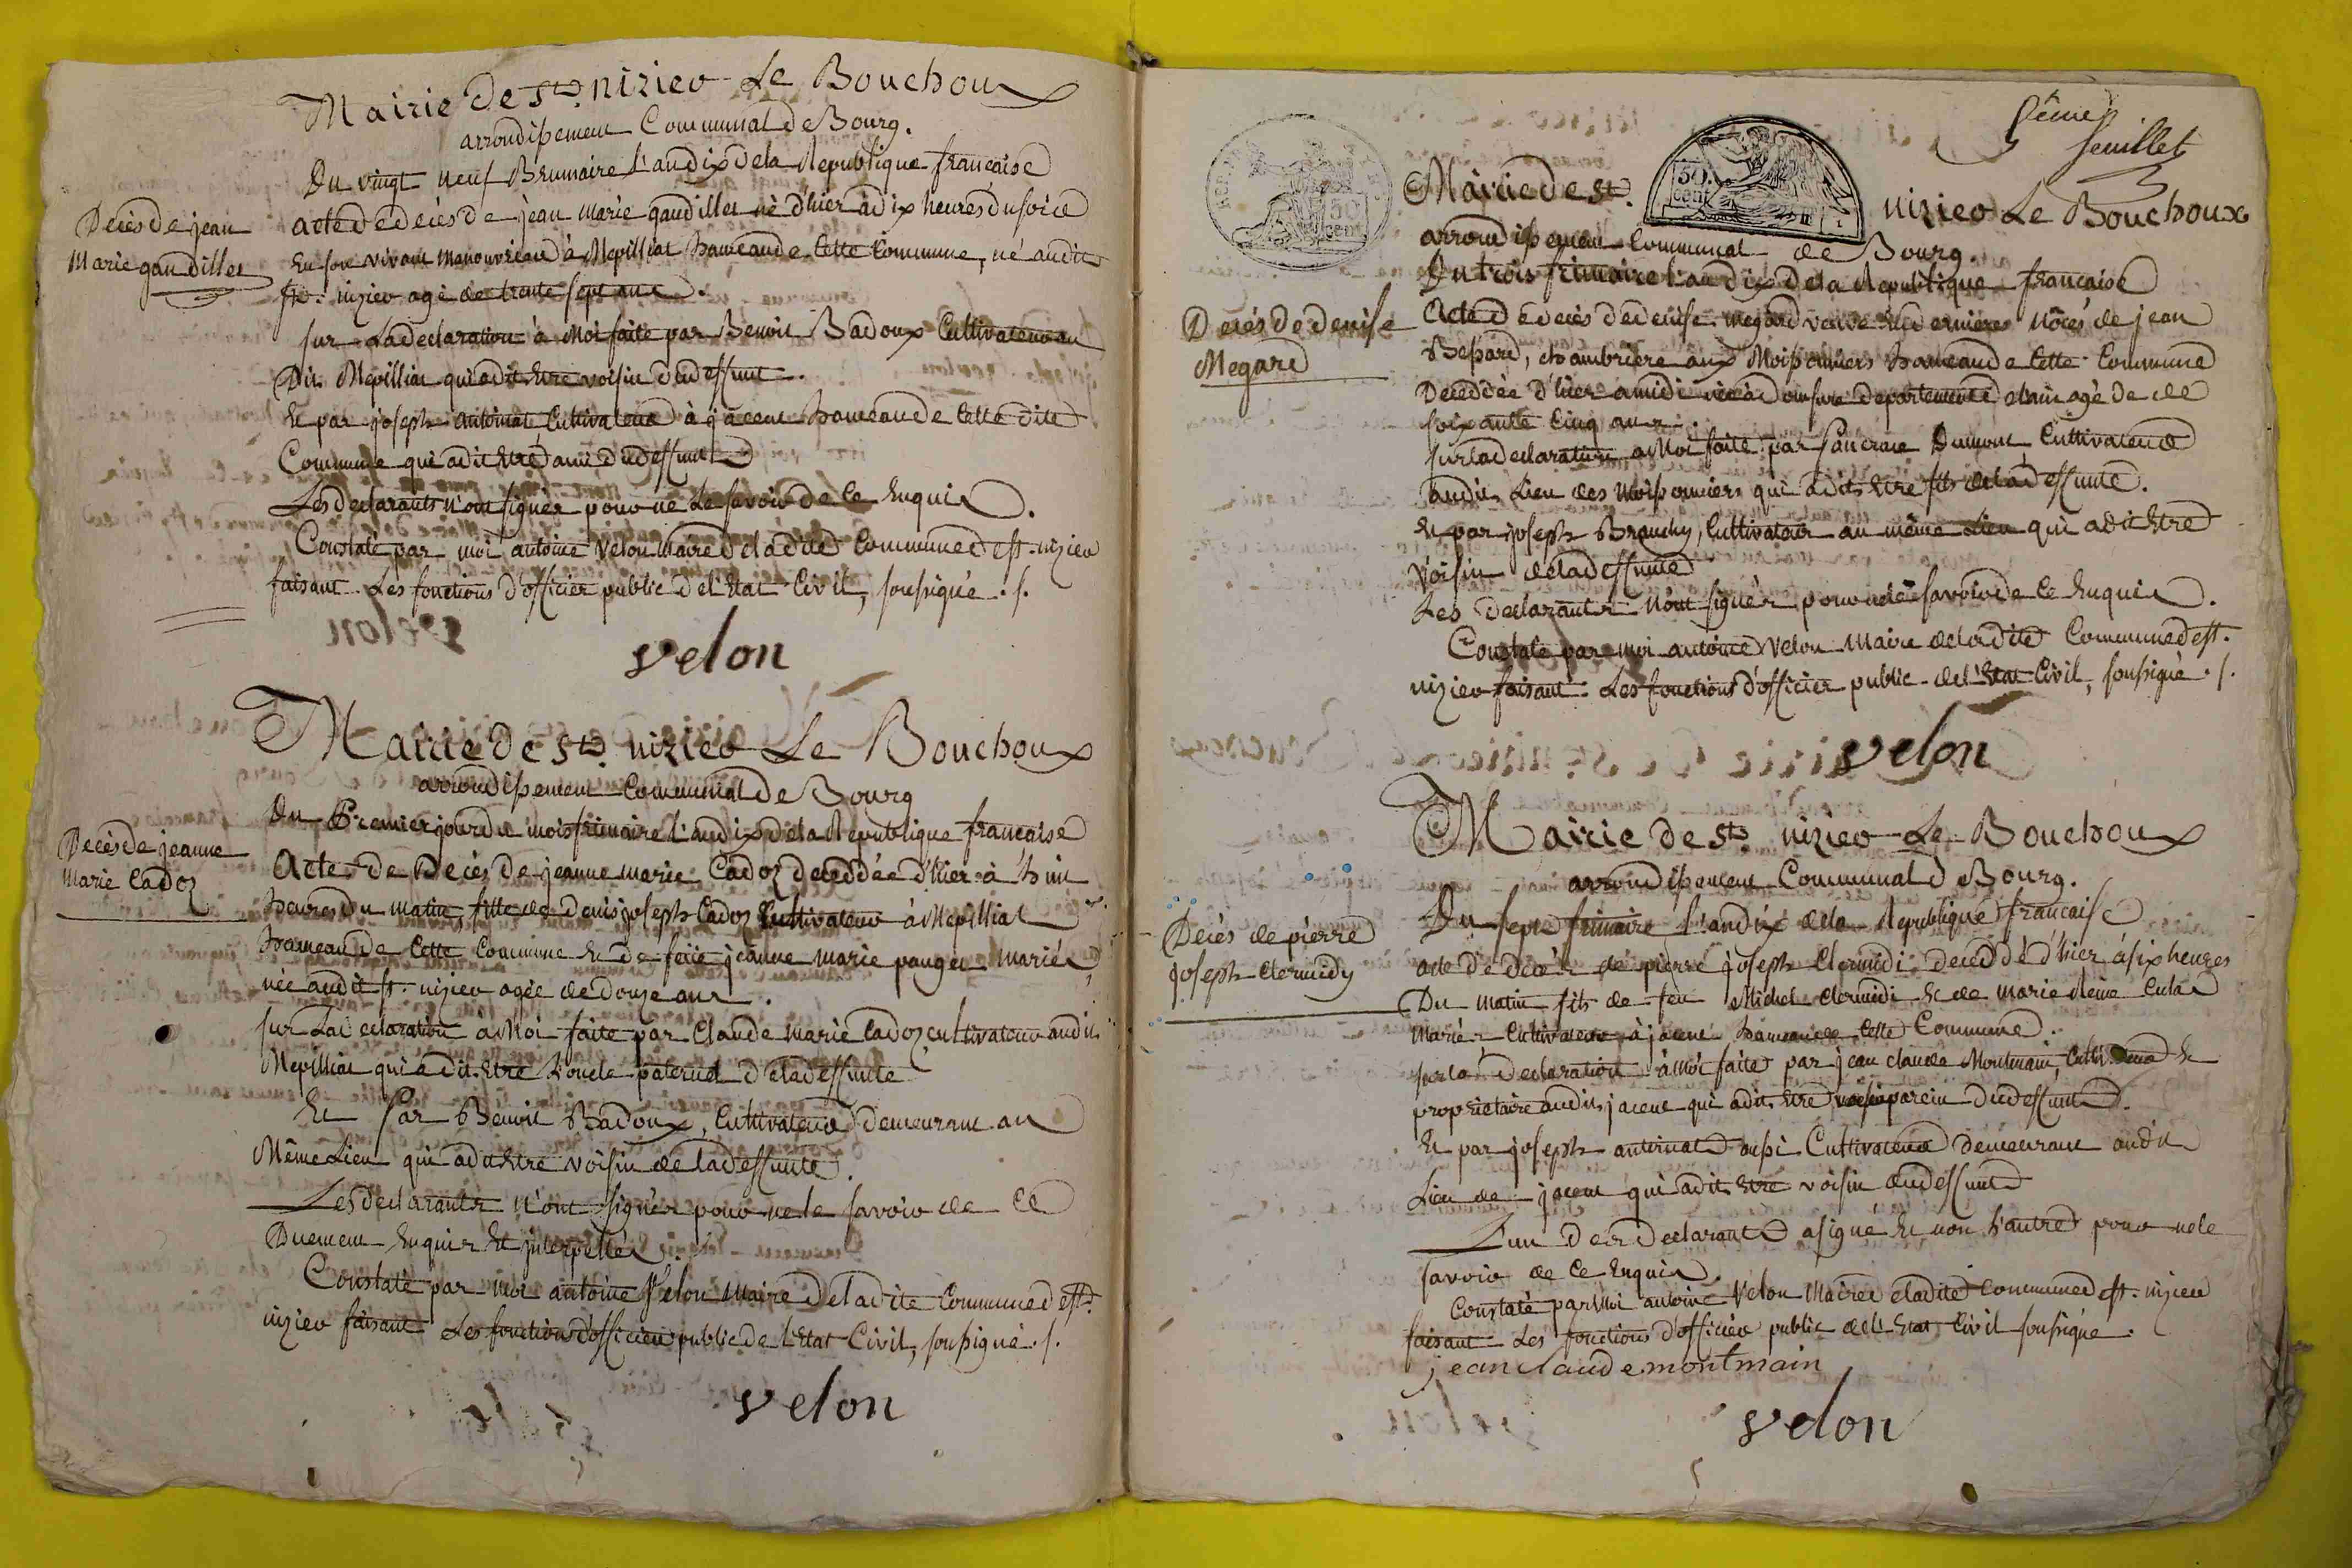 Mairie de St. nizier Le Bouchoux
arrondissement Communal de Bourg.
Du vingt neuf Brumaire l'an dix de la Republique francaise
Decès de jean
Marie gaudillet
acte de decès de jean marie gaudillet né d'hier à dix heures du soir
en son vivant manouvrier à Mepilliat hameau de Cette Commune, né audit
st. nizier agé de trente sept ans.
sur La declaration à Moi faite par Benoit Badoux Cultivateur au
Dit Mepilliat qui a dit Etre voisin du deffunt.
Et par joseph antoinat Cultivateur à jacent hameau de Cette dite
Commune qui a dit Etre ami du deffunt
Les declarants n'ont signés pour ne Le savoir de Ce Enquis.
Constaté par moi antoine velon maire de la dite Commune de st. nizier
faisant Les fonctions d'officier public de l'Etat Civil, soussigné. /.
velon
Mairie de St. nizier Le Bouchoux
arrondissement Communal de Bourg
Du Premier jour du mois frimaire l'an dix de la Republique francaise
Decès de jeanne
marie Cadoz
Acte de Decès de jeanne marie Cadoz deceddée d'hier à huit
heures du matin, fille de denis joseph Cadoz Cultivateur à Mepilliat
hameau de Cette Commune Et de feüe jeanne marie pauget mariés
née audit st. nizier agée de douze ans.
sur La declaration à Moi faite par Claude marie Cadoz cultivateur audit
Mepilliat qui a dit Etre L'oncle paternel de la deffunte
Et Par Benoit Badoux, Cultivateur demeurant au
Même Lieu qui a dit Etre voisin de la deffunte.
Les declarants n'ont signés pour ne le savoir de Ce
Duement Enquis Et interpellés.
Constaté par moi antoine Velon Maire de la dite Commune de st.
nizier faisant Les fonctions d'officier public de l'Etat Civil, soussigné. /.
velon
feuillet
Mairie de St. nizier Le Bouchoux
50
cent
arrondissement Communal de Bourg.
Du trois frimaire l'an dix de la Republique francaise
Decés de denise
Megard
Acte de decès de denise megard veuve En dernieres nôces de jean
Bessard, chambriere aux Moissonniers hameau de Cette Commune
Deceddée d'hier a midi née à domsure departement de l'ain agé de
soixante Cinq ans.
sur la declaration a Moi faite par Pancrace Dumont Cultivateur
audit Lieu des moissonniers qui a dit Etre fils de la deffunte.
Et par joseph Branchy, Cultivateur au même Lieu qui a dit Etre
Voisin de la deffunte
Les declarants n'ont signés pour ne le savoir de Ce Enquis.
Constaté par moi antoine velon maire de la dite Commune de st.
nizier faisant Les fonctions d'officier public de l'Etat Civil, soussigné. /.
velon
Mairie de St. nizier Le Bouchoux
arrondissement Communal de Bourg.
Du sept frimaire l'an dix de la Republique francaise
Decès de pierre
joseph clermidy
acte de decès de pierre joseph Clermidi deceddé d'hier à six heures
Du matin fils de feu Michel clermidi Et de marie Reine
Mariés Cultivateur à jacent hameau de Cette Commune.
sur la Declaration à Moi faite par jean claude Montmain, Cultivateur Et
proprietaire audit jacent qui a dit Etre parein du deffunt.
Et par joseph antoinat aussi Cultivateur demeurant audit
Lieu de jacent qui a dit Etre voisin du deffunt
L'un des Declarants a signé Et non L'autre pour ne le
savoir de Ce Enquis.
Constaté par Moi antoine Velon Maire de la dite Commune de st. nizier
faisant Les fonctions d'officier public de l'Etat Civil soussigné.
jean claude montmain
velon